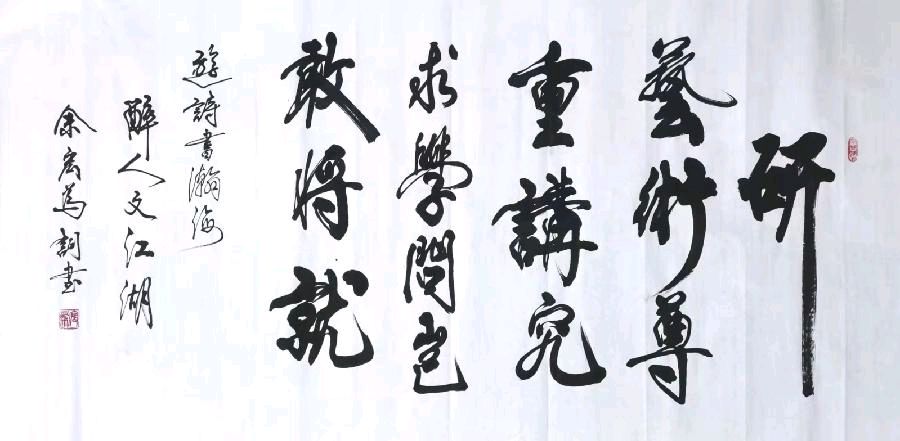 研
藝術尊
重講究
求學問豈
敢將就
遊詩書瀚海
醉人文江湖
余宏為詞書